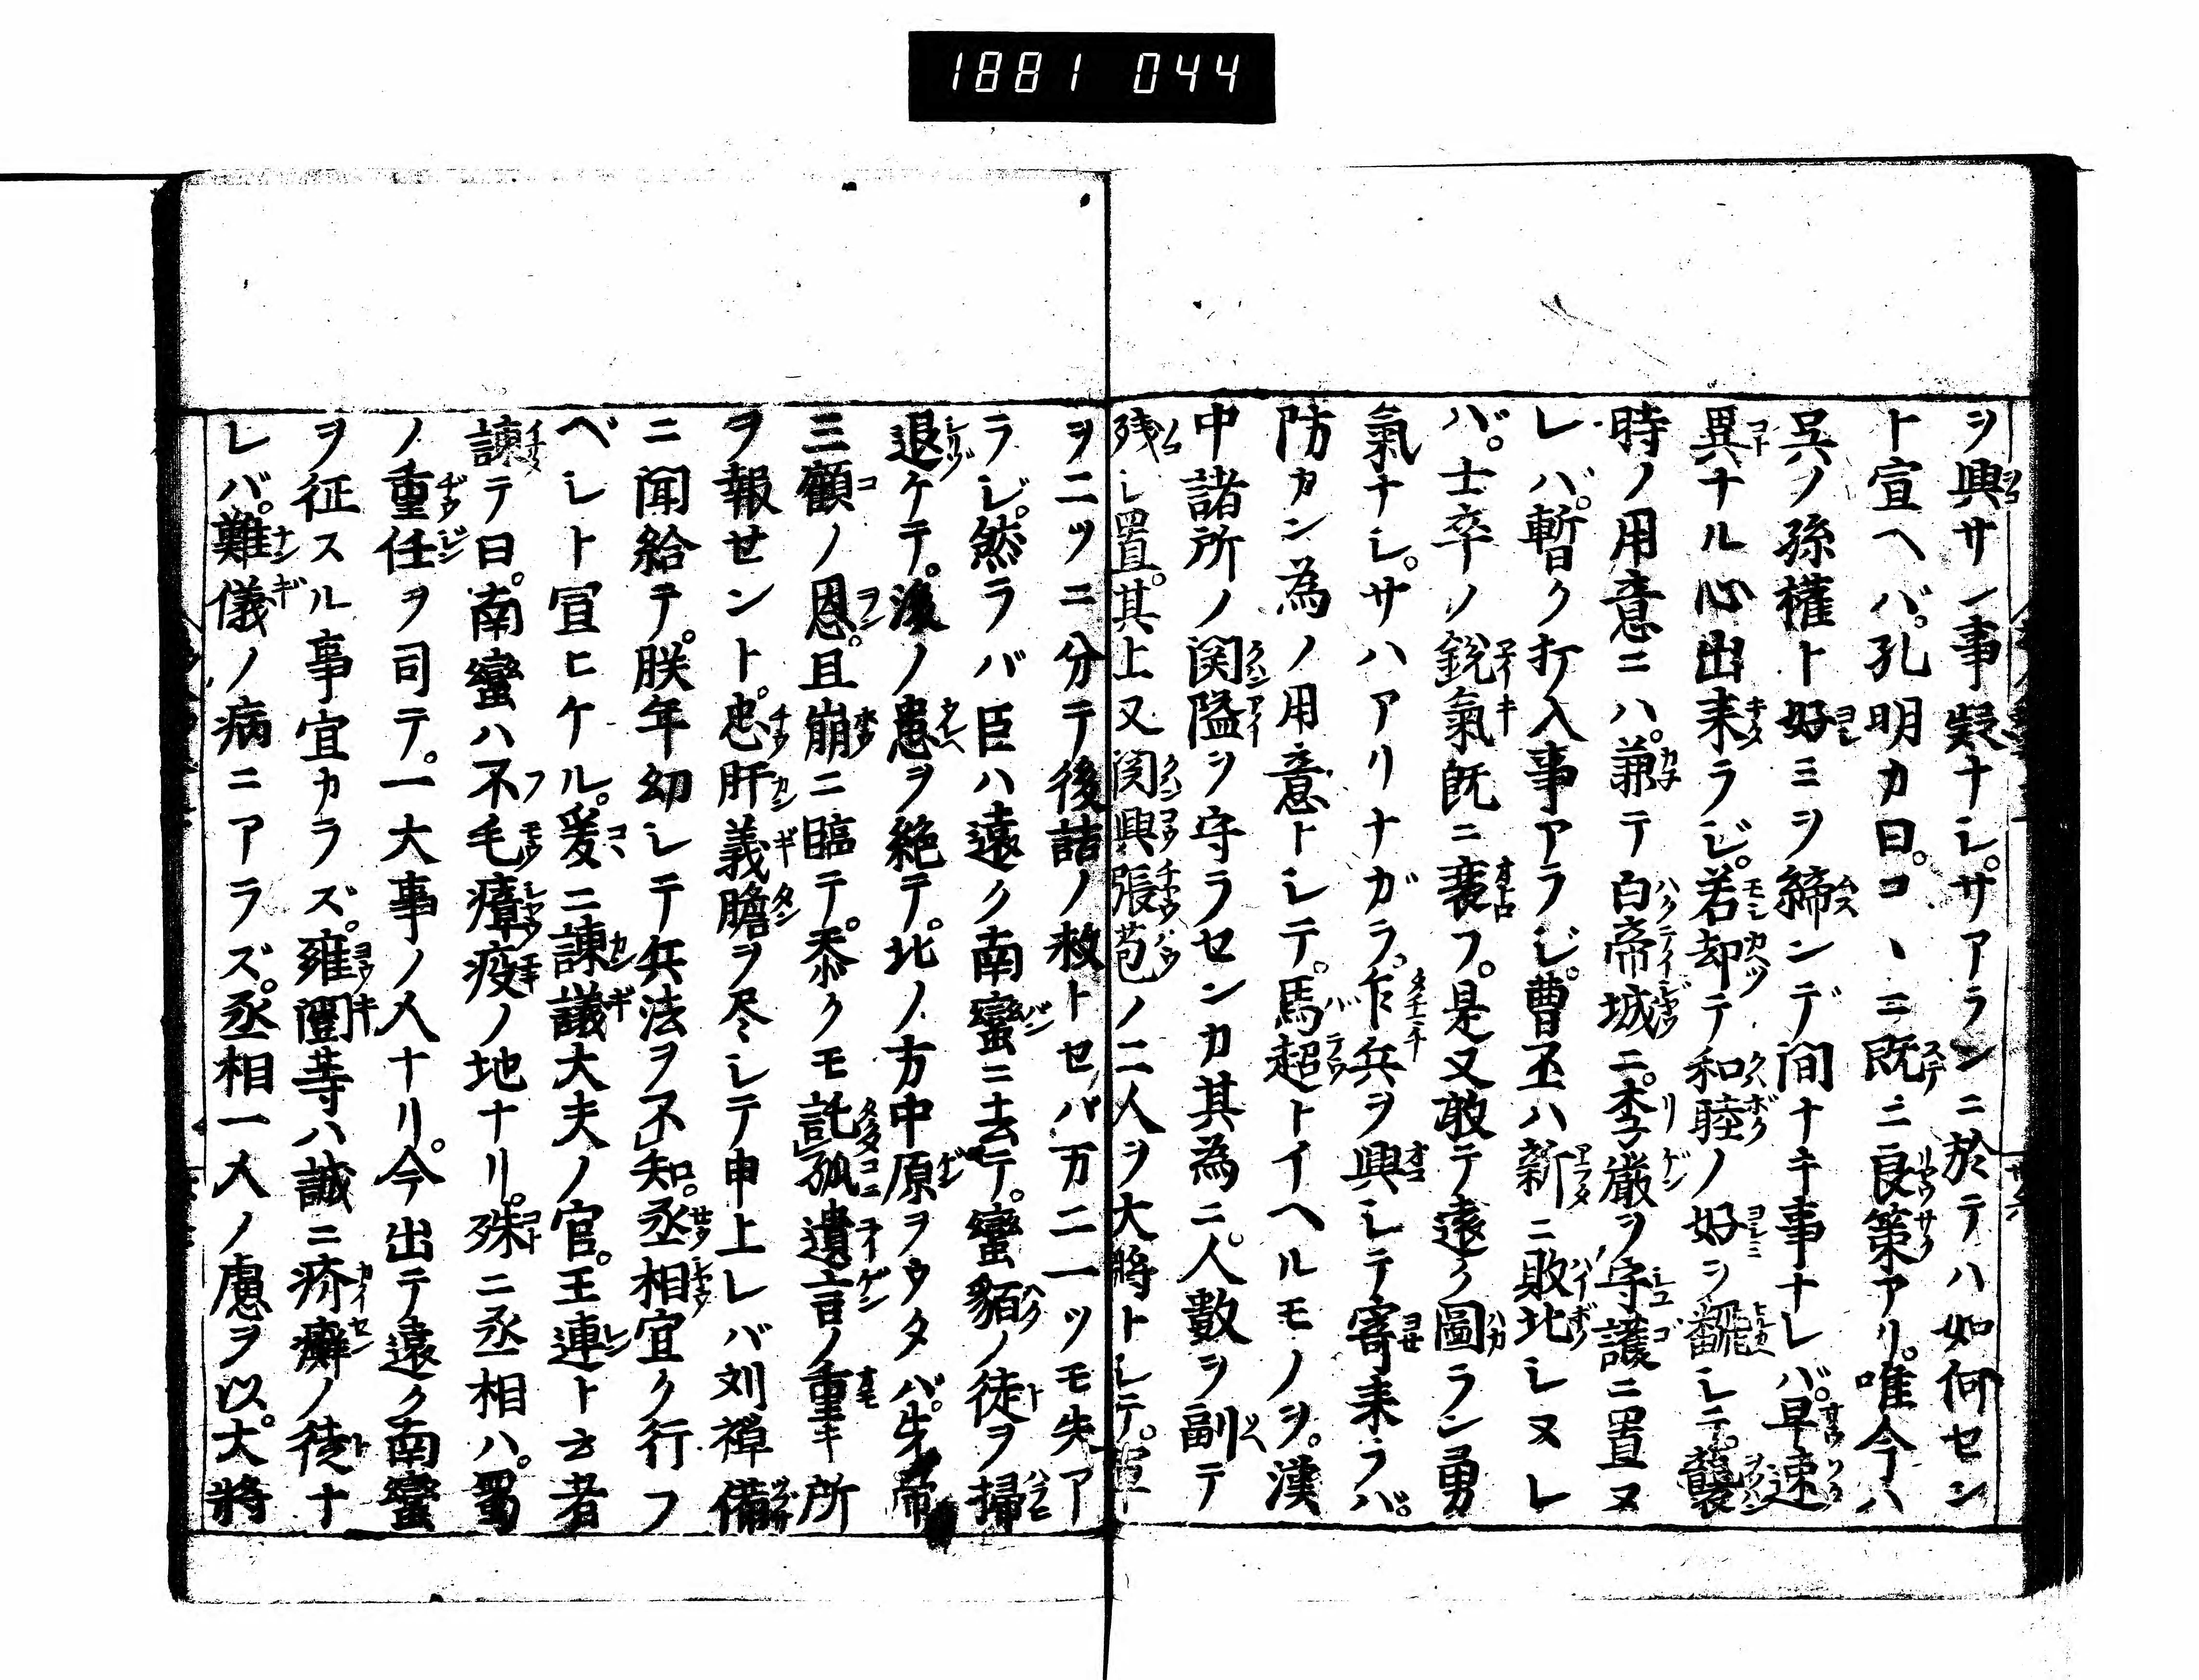 1881 044
ヲ興サン事疑ナシ。サアランニ於テハ如何セン
ト宣ヘバ。孔明カ曰。コヽニ既ニ良策アリ。唯今ハ
呉ノ孫權ト好ミヲ締ンデ間ナキ事ナレバ。早速
異ナル心出来ラジ。若却テ和睦ノ好ヲ飜シテ。襲
時ノ用意ニハ。兼テ白帝城ニ。李厳ヲ守護ニ置ヌ
レバ。暫ク打入事アラジ。曹丕ハ新ニ敗北シヌレ
バ。士卒ノ鋭氣既ニ衰フ。是又敢テ遠ク圖ラン勇
氣ナシ。サハアリナガラ。乍兵ヲ興シテ寄来ラバ。
防カン為ノ用意トシテ。馬超トイヘルモノヲ。漢
中諸所ノ関隘ヲ守ラセンカ其為ニ。人數ヲ副テ
残シ置。其上又関興張苞ノ二人ヲ大將トシテ。軍
ヲ二ツニ分テ後詰ノ救トセバ万ニ一ツモ失ア
ラジ。然ラバ臣ハ遠ク南蠻ニ去テ。蠻貊ノ徒ヲ掃
退ケテ。後ノ患ヲ絶テ。北ノ方中原ヲウタバ。先帝
三顧ノ恩。且崩ニ臨テ。忝クモ託孤遺言ノ重キ所
ヲ報せント。忠肝義膽ヲ尽シテ申上レバ刘禅備
ニ聞給テ。朕年幼シテ兵法ヲ不知。丞相宜ク行フ
ベシト宣ヒケル。爰ニ諫議大夫ノ官。王連ト云者
諫テ曰。南蠻ハ不毛瘴疫ノ地ナリ。殊ニ丞相ハ。蜀
ノ重任ヲ司テ。一大事ノ人ナリ。今出テ遠ク南蠻
ヲ征スル事宜カラズ。雍闓等ハ誠ニ疥癬ノ徒ナ
レバ。難儀ノ病ニアラズ。丞相一人ノ慮ヲ以。大將